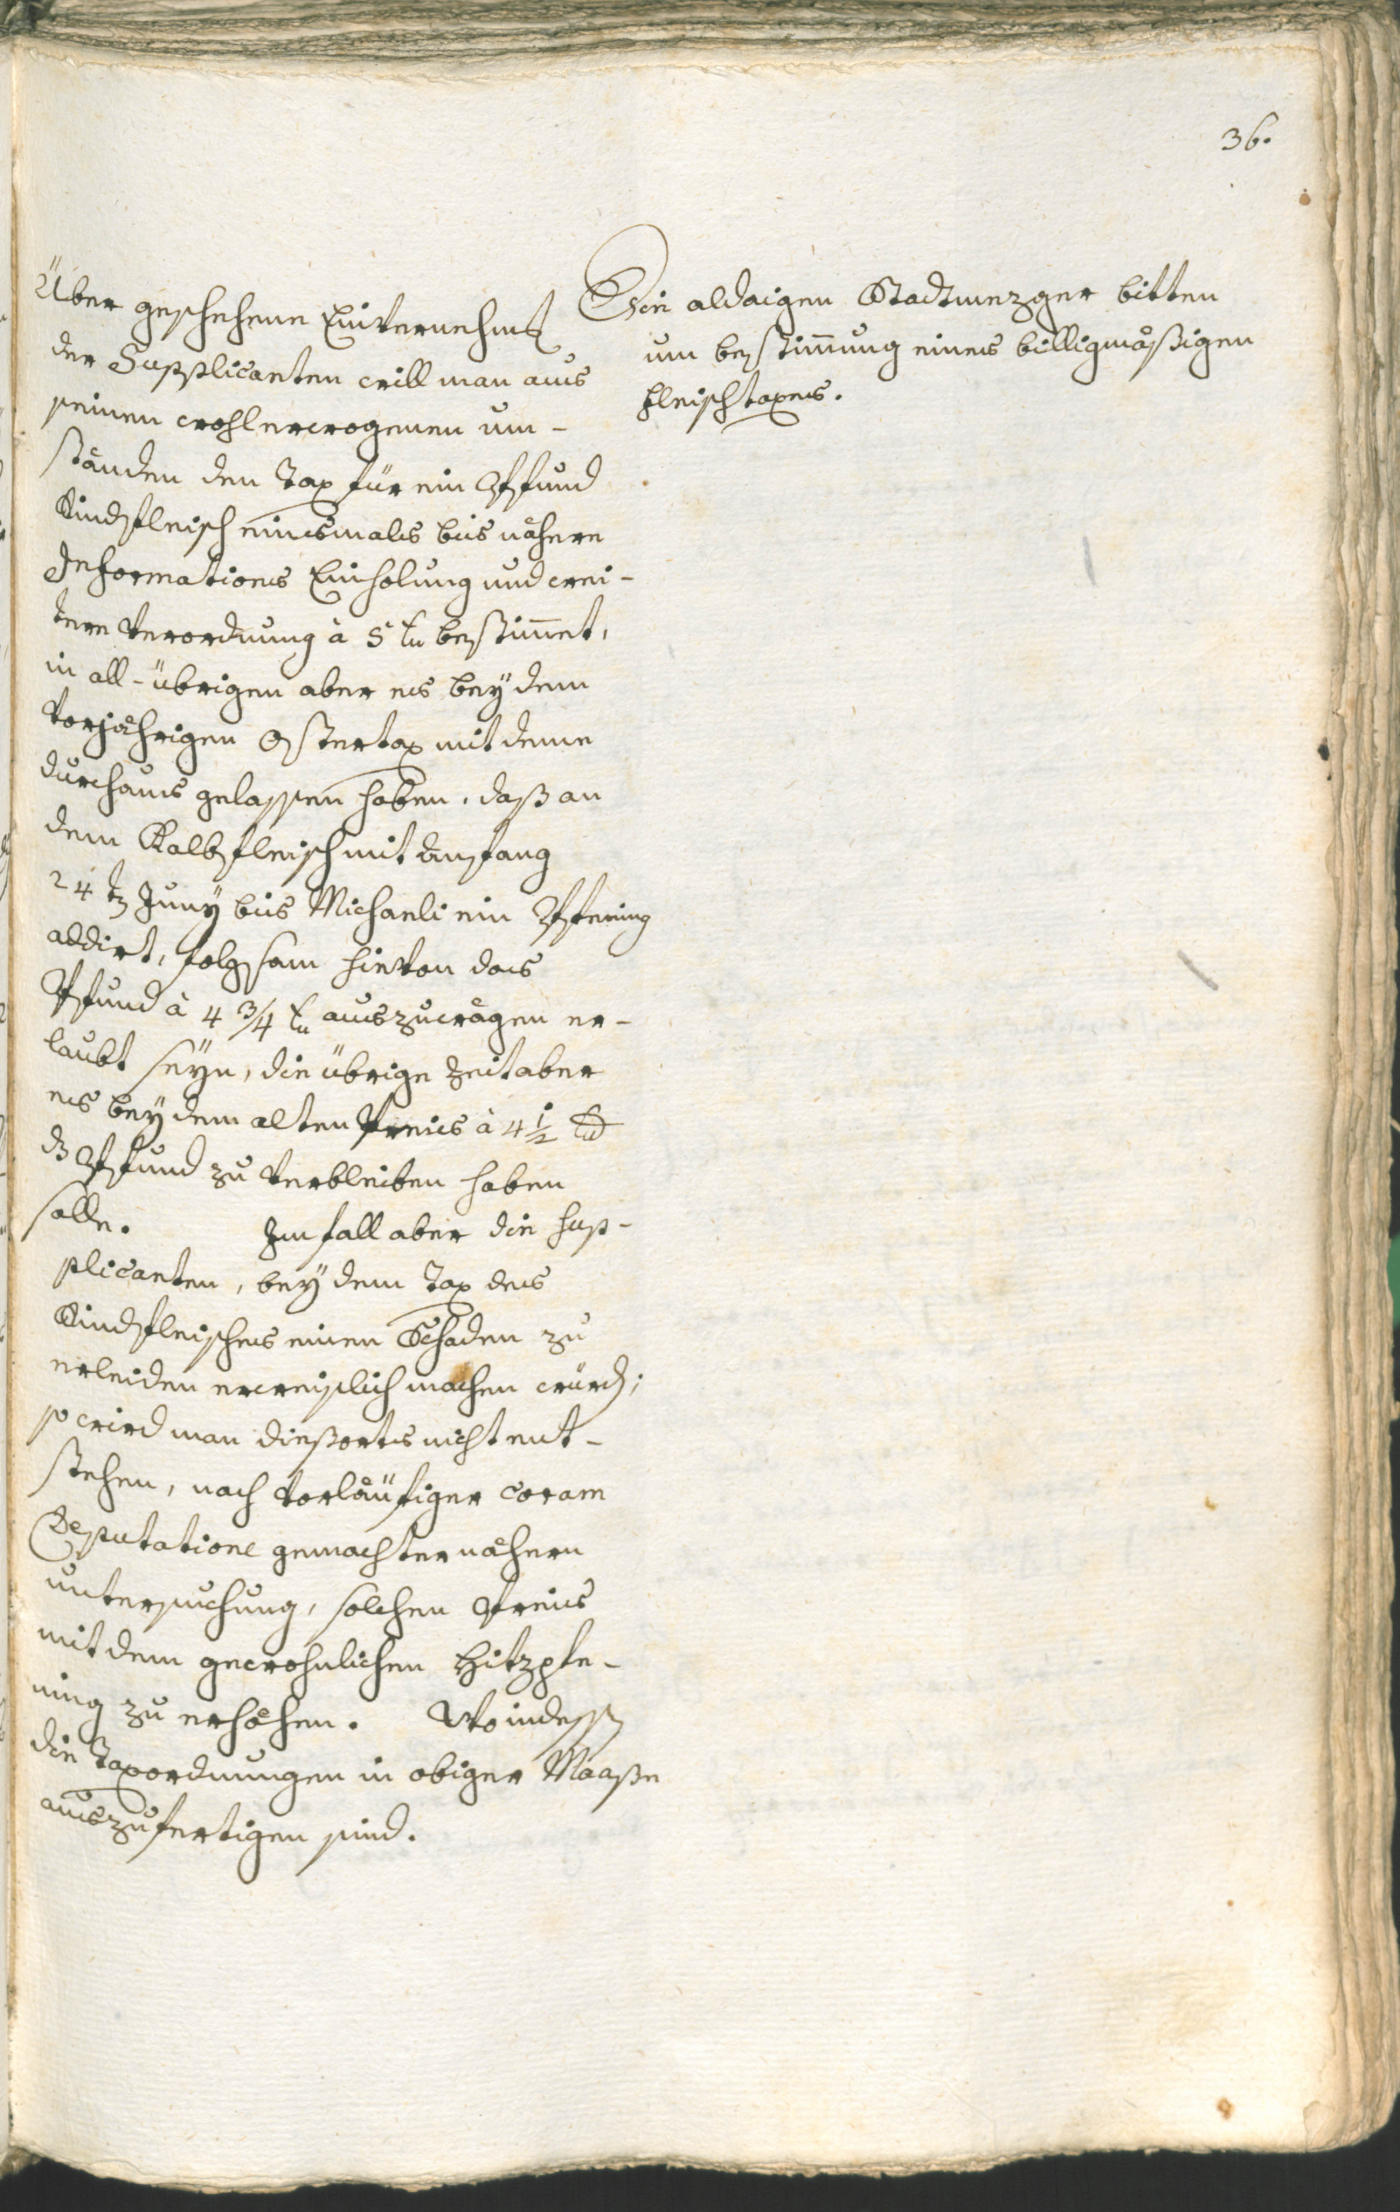 36.
Über geschehene Einvernehmg
der Supplicanten will man aus
seinen wohlerwogenen um-
ständen den Tax für ein Pfund
Rindfleisch einsmals bis nähere
Informations Einholung und wei-
tere Verordnung à 5 kr bestimmet,
in all-übrigen aber es bey dem
vorjährigen Ostertax mit deme
durchaus gelassen haben, daß an
dem Kalbfleisch mit Anfang
24 tn Juny bis Michaeli ein Pfening
addirt, folgsam hievon das
Pfund à 4 3/4 kr auszuwägen er-
laubt seyn, die übrige Zeit aber
es bey dem alten Preis à 4 1/2 kr
dz Pfund zu verbleiben haben
solle. Im fall aber die sup-
plicanten, bey dem Tax des
Rindfleisches einen Schaden zu
erleiden erweislich machen würdn;
so wird man diesorts nicht ent-
stehen, nach vorläufiger coram
Deputatione gemachter nähern
untersuchung, solchen Preis
mit dem gewohnlichen Hitzpfe-
ning zu erhöhen. Wo indessn
die Taxordnungen in obiger Maaße
auszufertigen sind.
Die aldaigen Stadtmezger bitten
um bestimmung eines billigmäßigen
fleischtaxes.